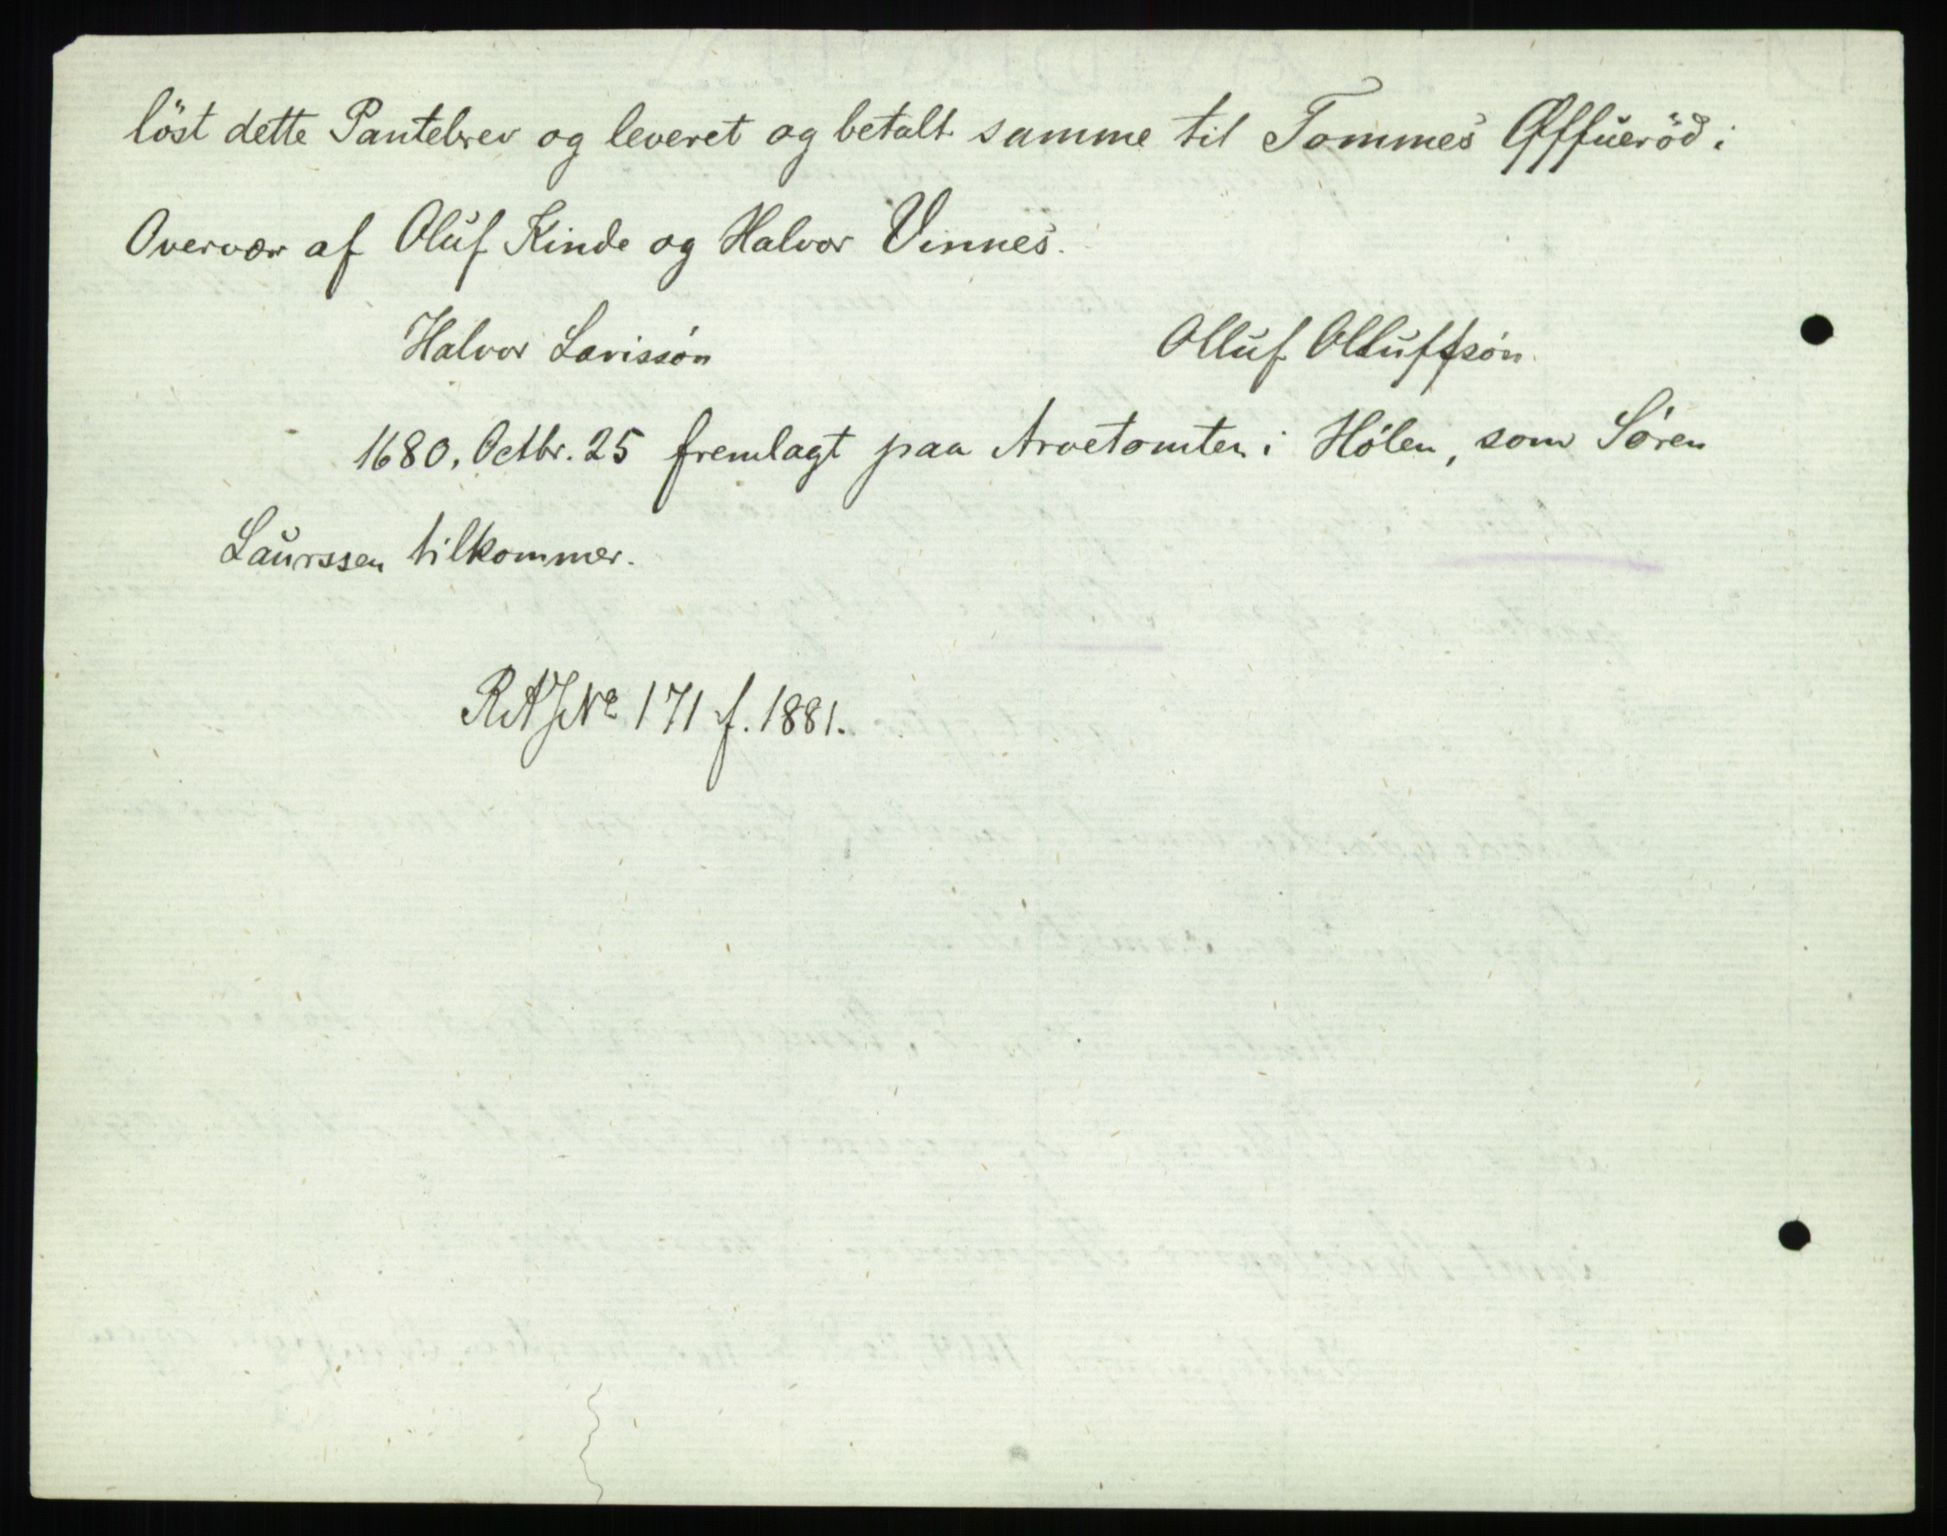 löst dette Pantebrev og leveret og betalt samme til Tommes Øffueröd i
Overvær af Oluf Kinde og Halvor Vinnes.
Halvor Lavissøn Olluf Olluffsøn.
1680, Octbr. 25 fremlagt paa Arvetomten i Hölen, som Søren
Laurssen tilkommer.
RAJNo 171 f. 1881.